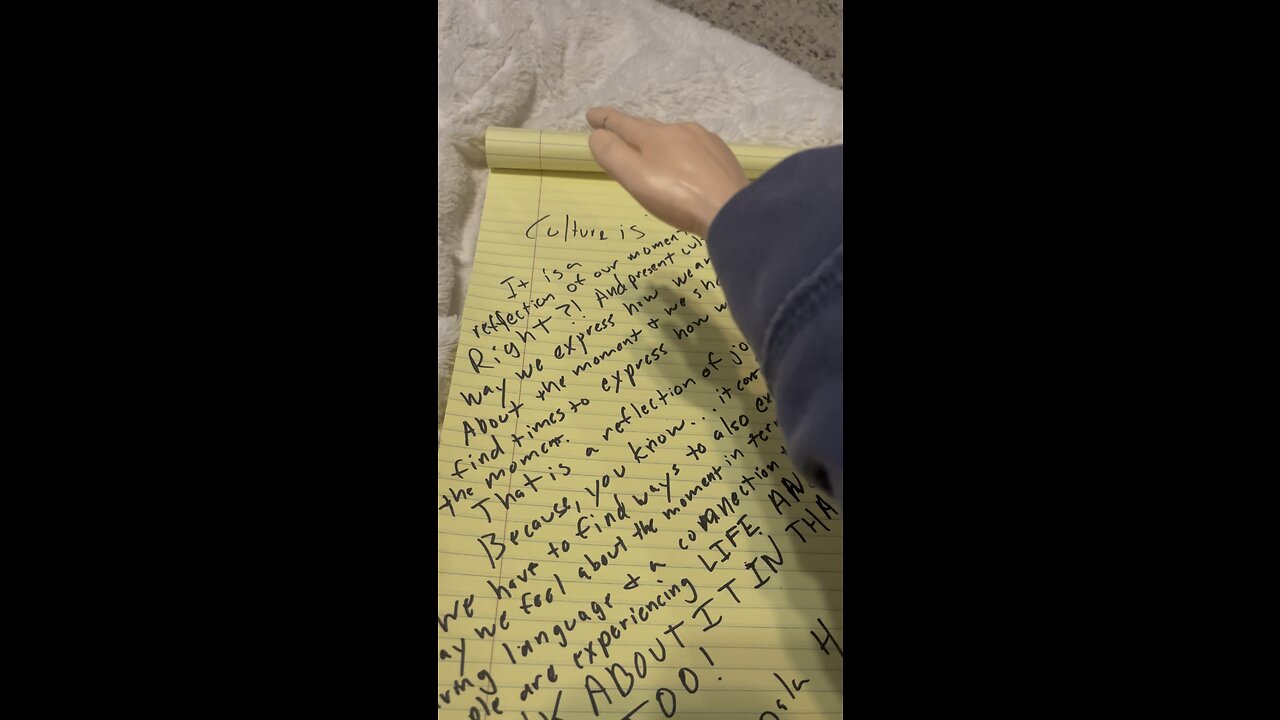 Culture is
It is a
reflection of our moment
Right?! And present
way we express how we
About the moment & we
find times to express how
the moment.
That is a reflection of
Because, you know... it
we have to find ways to also
we feel about the moment in
language & a connection
are experiencing LIFE.
ABOUT IT IN
TOO!